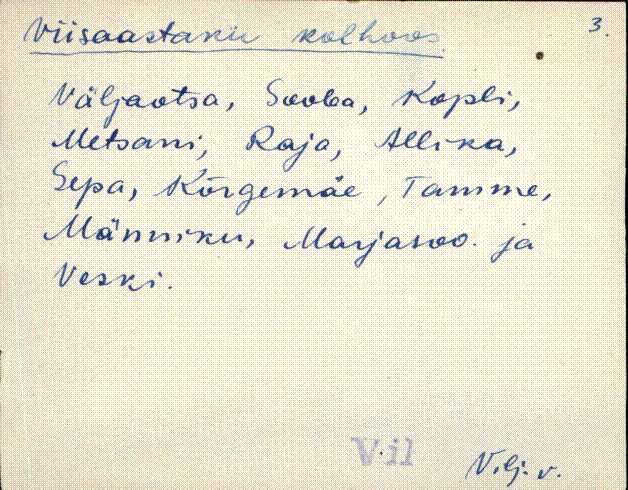 Viisaastaku kolhoos.
3.
Väljaotsa, Sooba, Kopli,
Metsani, Raja, Allika,
Sepa, Kõrgemäe, Tamme,
Männiku, Marjasoo ja
Veski.
Vil
Vilj. v.